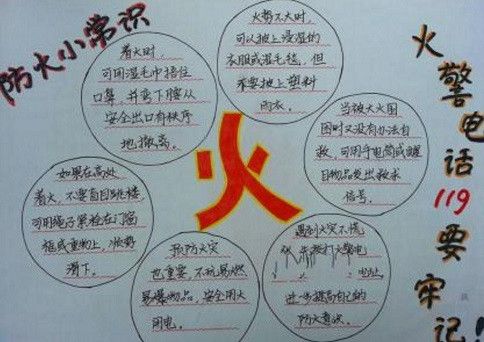 防火小常识
着火时,
可用湿毛巾捂住
口鼻,并弯下腰从
安全出口有秩序
地撤离。
火势不大时,
可以披上浸湿的
衣服或湿毛毯,但
不要披上塑料
雨衣。
当被大火围
困时又没有办法自
救,可用手电筒或醒
目物品发出求救
信号。
如果在高处
着火,不要盲目跳楼,
可用绳子紧栓在门窗
框或重物上,顺势
滑下。
预防火灾
也重要,不玩易燃
易爆物品,安全用火
用电。
遇到火灾不慌
拨打火警电
进一步提高自己的
防火意识。
火
火警电话119要牢记!